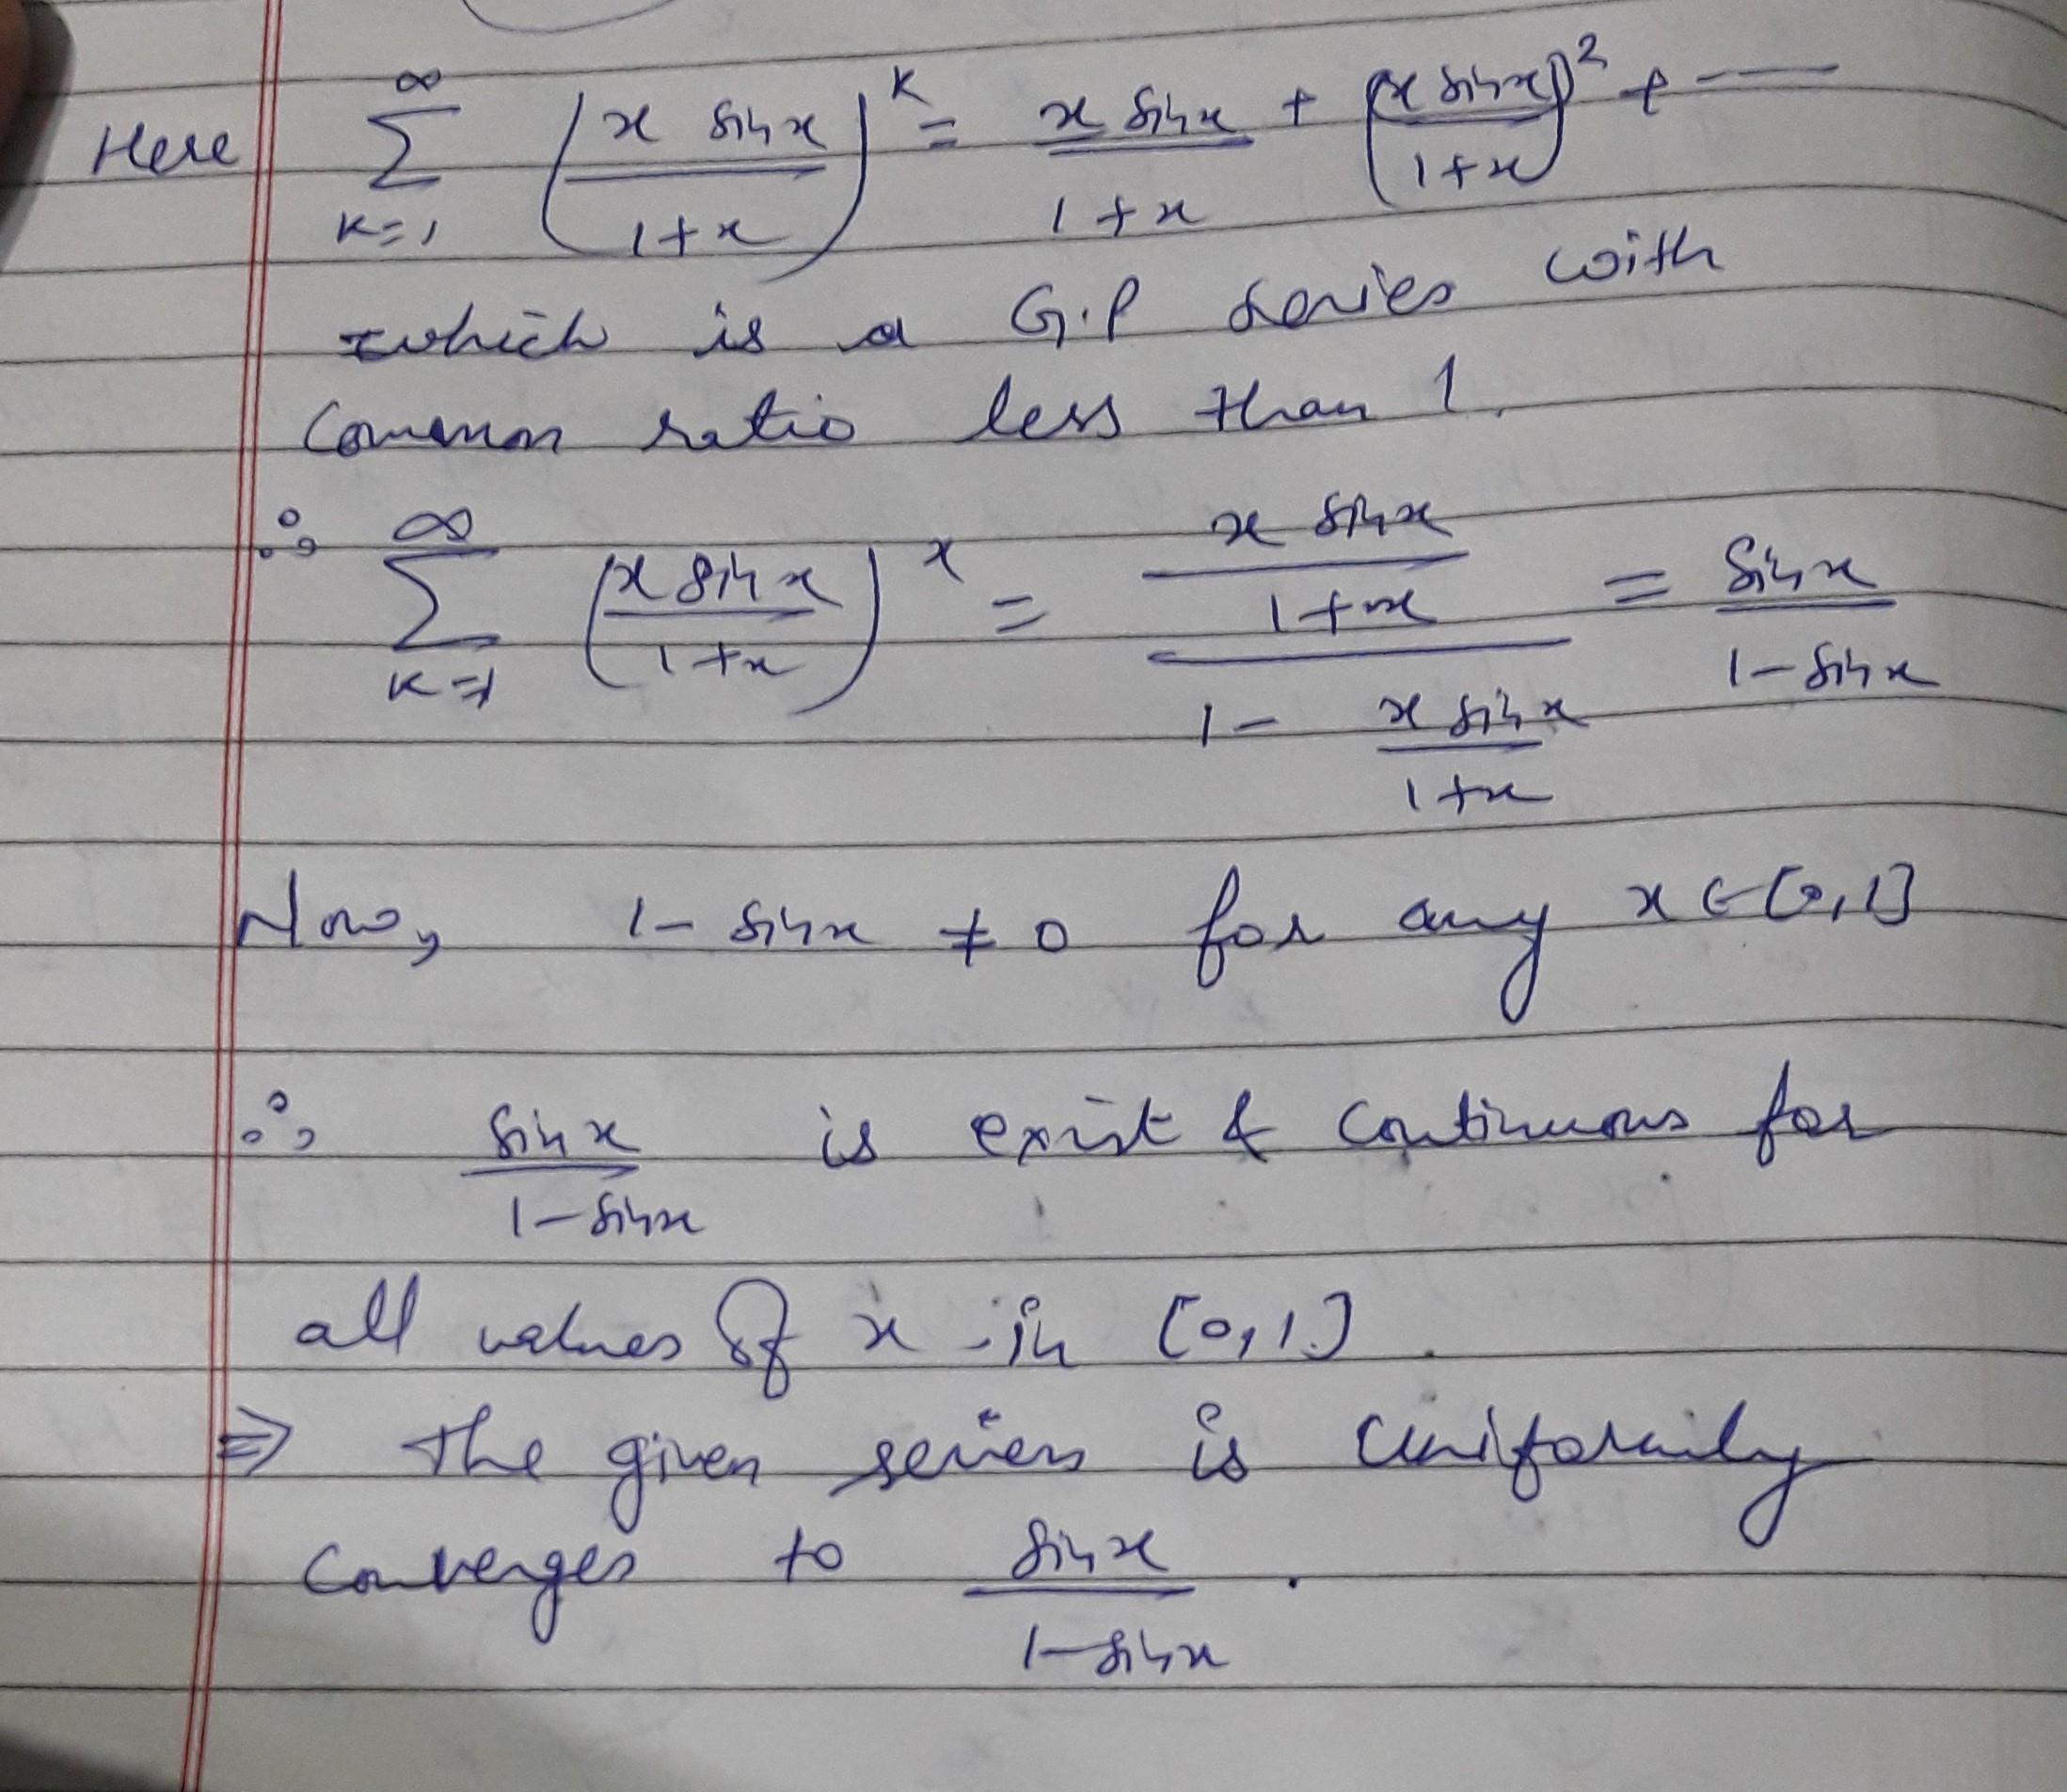 Here ∞ Σ K=1 (x sinx / 1+x)^K = x sinx / 1+x + (x sinx / 1+x)^2 + ——
which is a G.P series with
Common ratio less than 1.
∴ ∞ Σ K=1 (x sinx / 1+x)^x = (x sinx / 1+x) / (1 - x sinx / 1+x) = sinx / 1-sinx
Now, 1- sinx ≠ 0 for any x ∈ [0,1]
∴ sinx / 1-sinx is exist & continuous for
all values of x in [0,1].
⇒ The given series is uniformily
converges to sinx / 1-sinx .